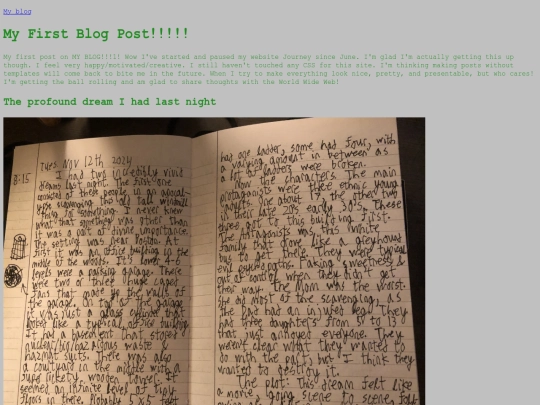 My blog
My First Blog Post!!!!!
My first post on MY BLOG!!!1! Wow I've started and paused my website Journey since June. I'm glad I'm actually getting this up
though. I feel very happy/motivated/creative. I still haven't touched any CSS for this site. I'm thinking making posts without
templates will come back to bite me in the future. When I try to make everything look nice, pretty, and presentable, but who cares!
I'm getting the ball rolling and am glad to share thoughts with the World Wide Web!
The profound dream I had last night
Tues Nov 12th 2024
8:15
I had two incredibly vivid
dreams last night. The first one
consisted of these people in an apocal-
ypse scavenging this old tall windmill
thing for something. I never knew
what that something was other than
it was a part of divine importance.
The setting was near Boston. At
first it was an office building in the
middle of the woods. It's lower 4-6
levels were a parking garage. There
were two or three huge caged
fans that made up the walls of
the garage. On top of the garage
it was just a glass cylinder that
looked like a typical office building
It had a basement that stored
nuclear/bio/hazardous waste &
hazmat suits. There was also
a courtyard in the middle with a
super rickety wooden tower. It
seemed an infinite level of
floors in there. Probably
had one ladder, some had four, with
a varying amount in between as
a lot of ladders were broken.
Now the characters. The main
protagonists were three ethnic young
adults. One about 17, the other two
in their late 20s early 30s. These
three got to this building first.
The antagonists was this white
family that drove like a greyhound
bus to get there. They were typical
evil psychopaths. Faking sweetness &
out of control when they didn't get
their way. The mom was the worst.
She did most of the scavenging, as
the Dad had an injured leg. They
had three daughters from 5 to 13
that just annoyed everyone. They
weren't clear what they wanted to
do with the parts but I think they
wanted to destroy it.
The plot: This dream felt like
a movie, going scene to scene,